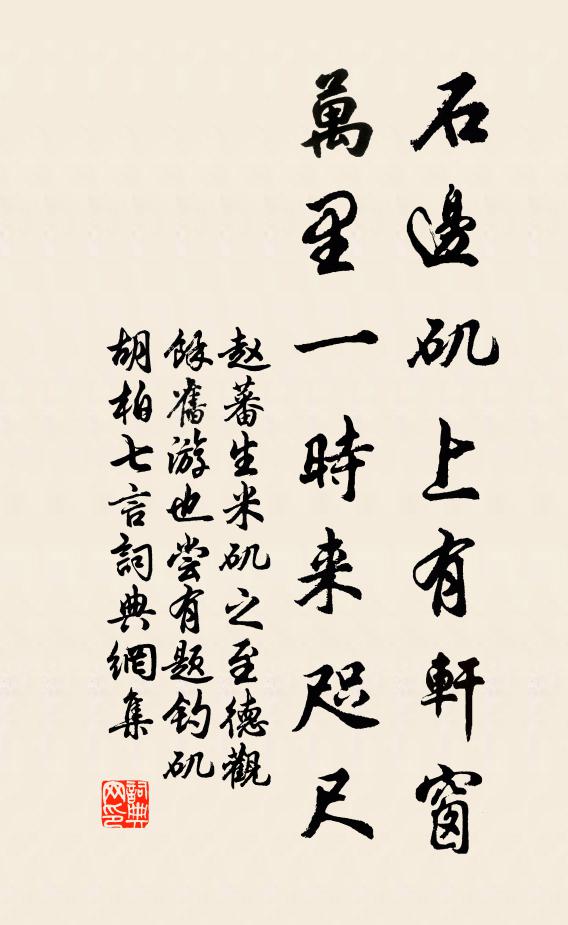 石邊矶上有軒窗
萬里一時来咫尺
赵蕃生米矶之至德觀
餘舊游也尝有题钓矶
胡柏七言詞典網集
詞典网印